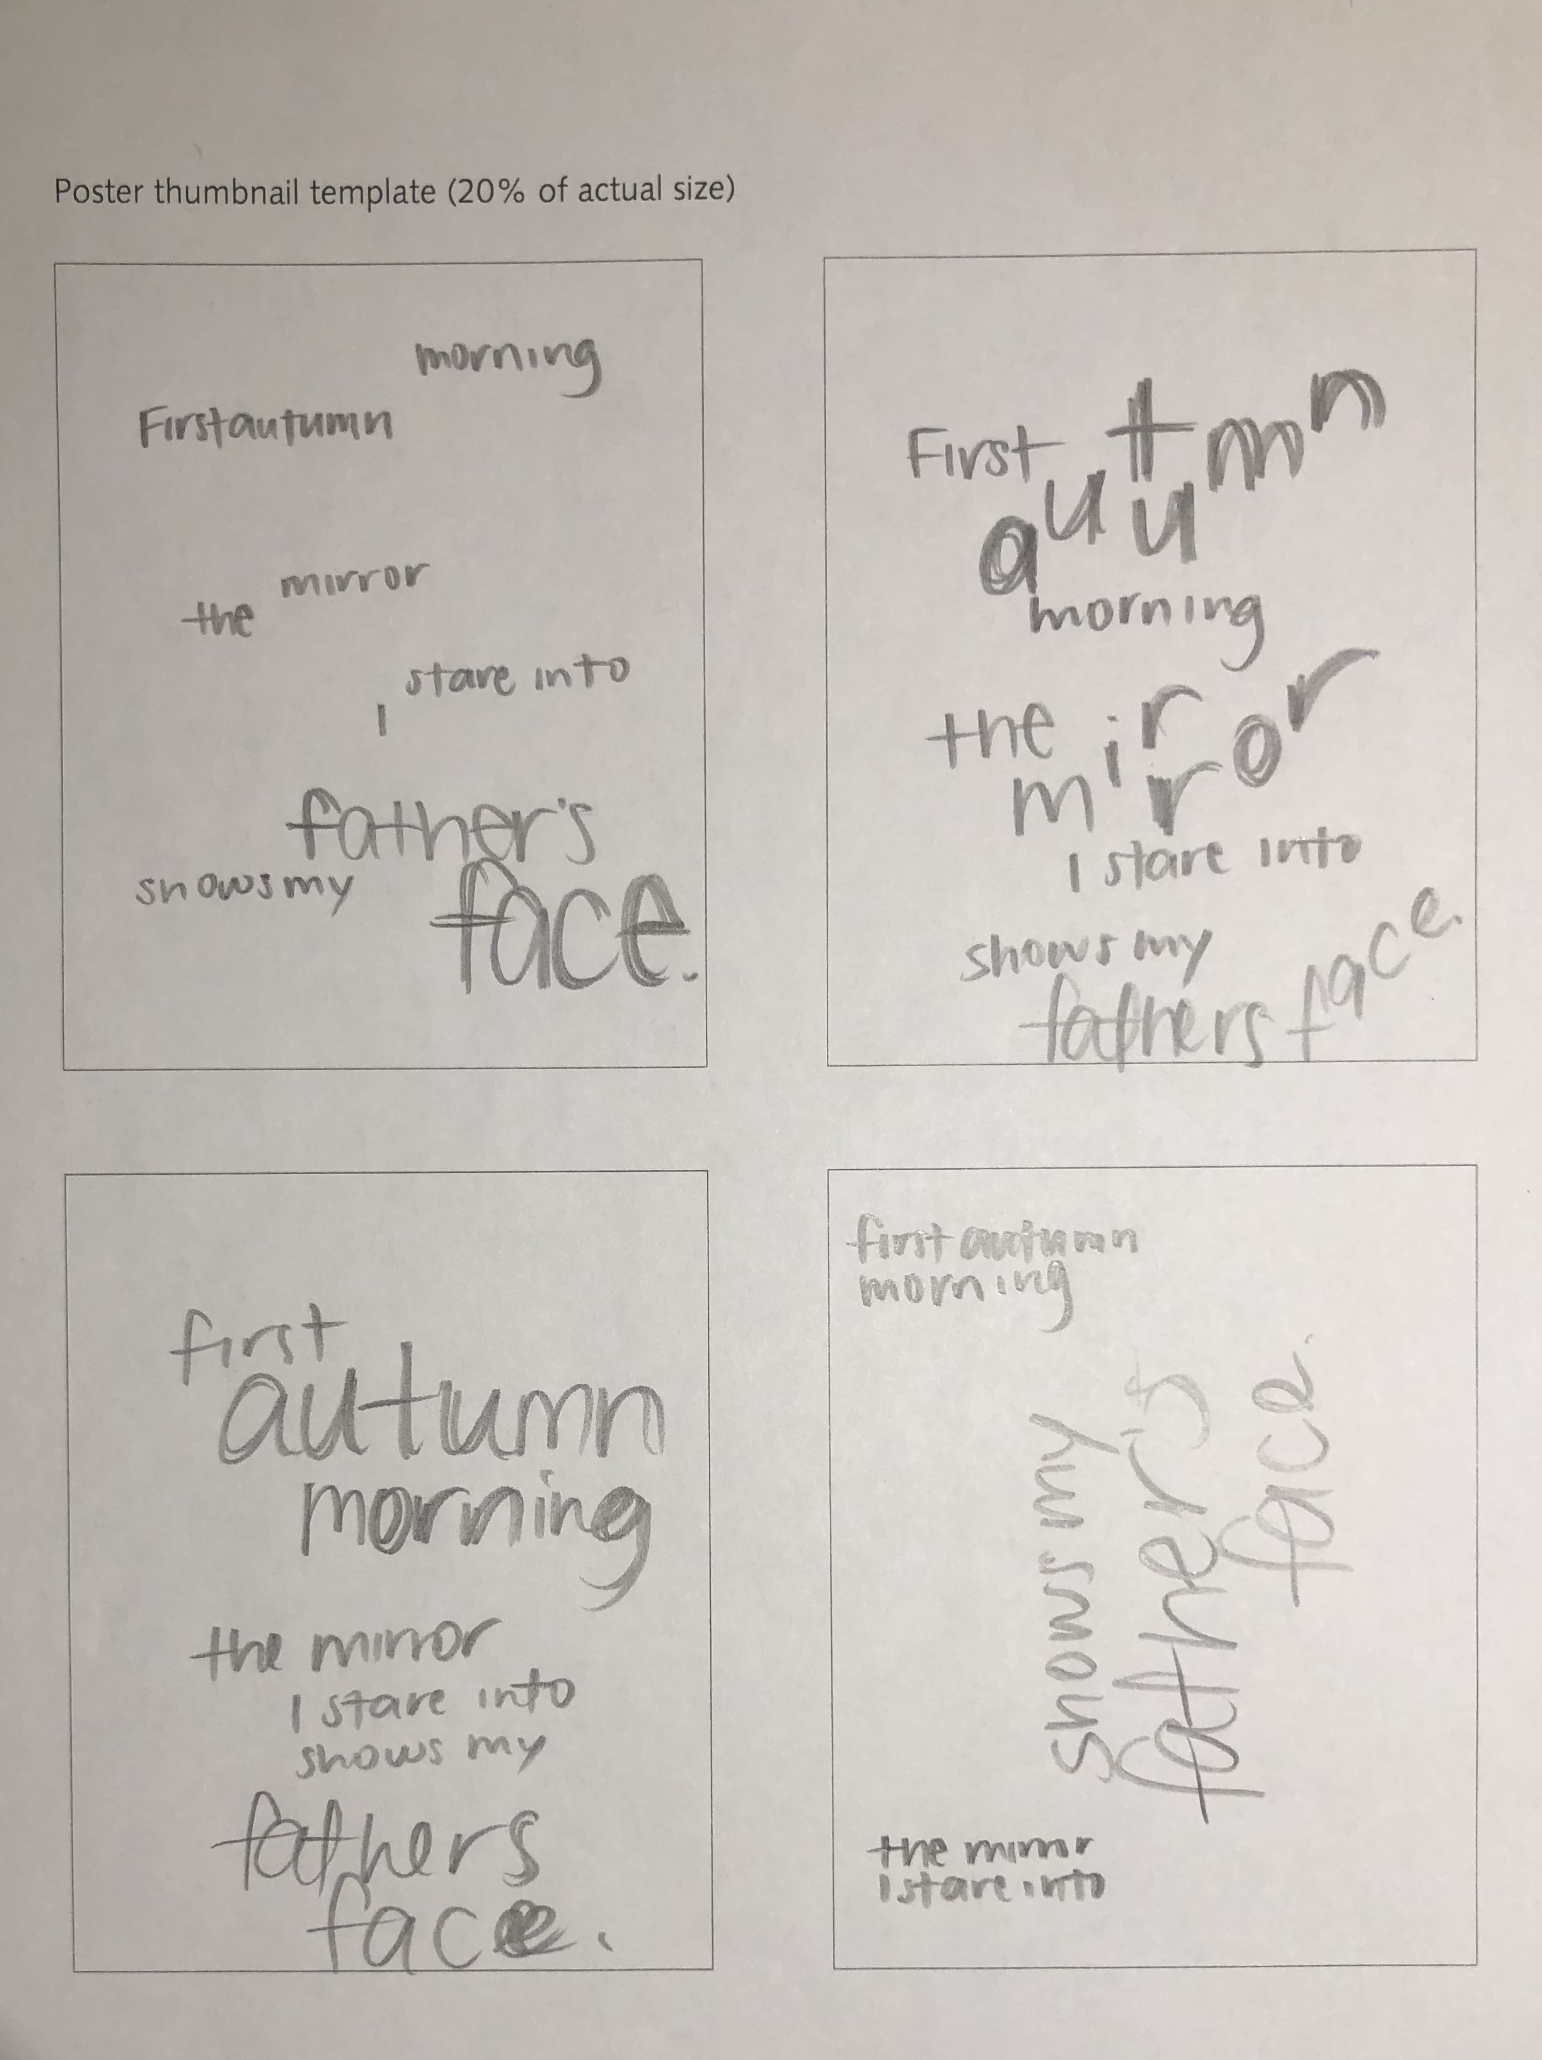 Poster thumbnail template (20% of actual size)
morning
First autumn
the mirror
I stare into
father's
shows my
face.
First autumn
morning
the mirror
I stare into
shows my
fathers face.
first
autumn
morning
the mirror
I stare into
shows my
fathers
face.
first autumn
morning
shows my
father's
face.
the mirror
I stare into